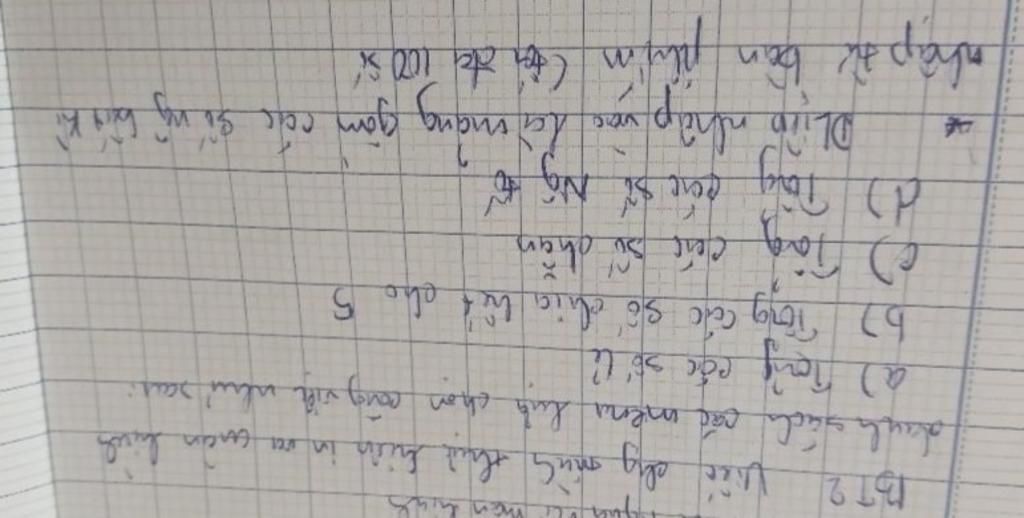 quả ra màn hình
BT2 Viết ctrg mình thực hiện in ra màn hình
danh sách các menu lệnh chọn công việc như sau:
a) Tổng các số lẻ
b) Tổng các số chia hết cho 5
c) Tổng các số chẵn
d) Tổng các số Ng tố
* DLiệu nhập vào là mảng gồm các số ng bất kì
nhập từ bàn phím (tối đa 100 số